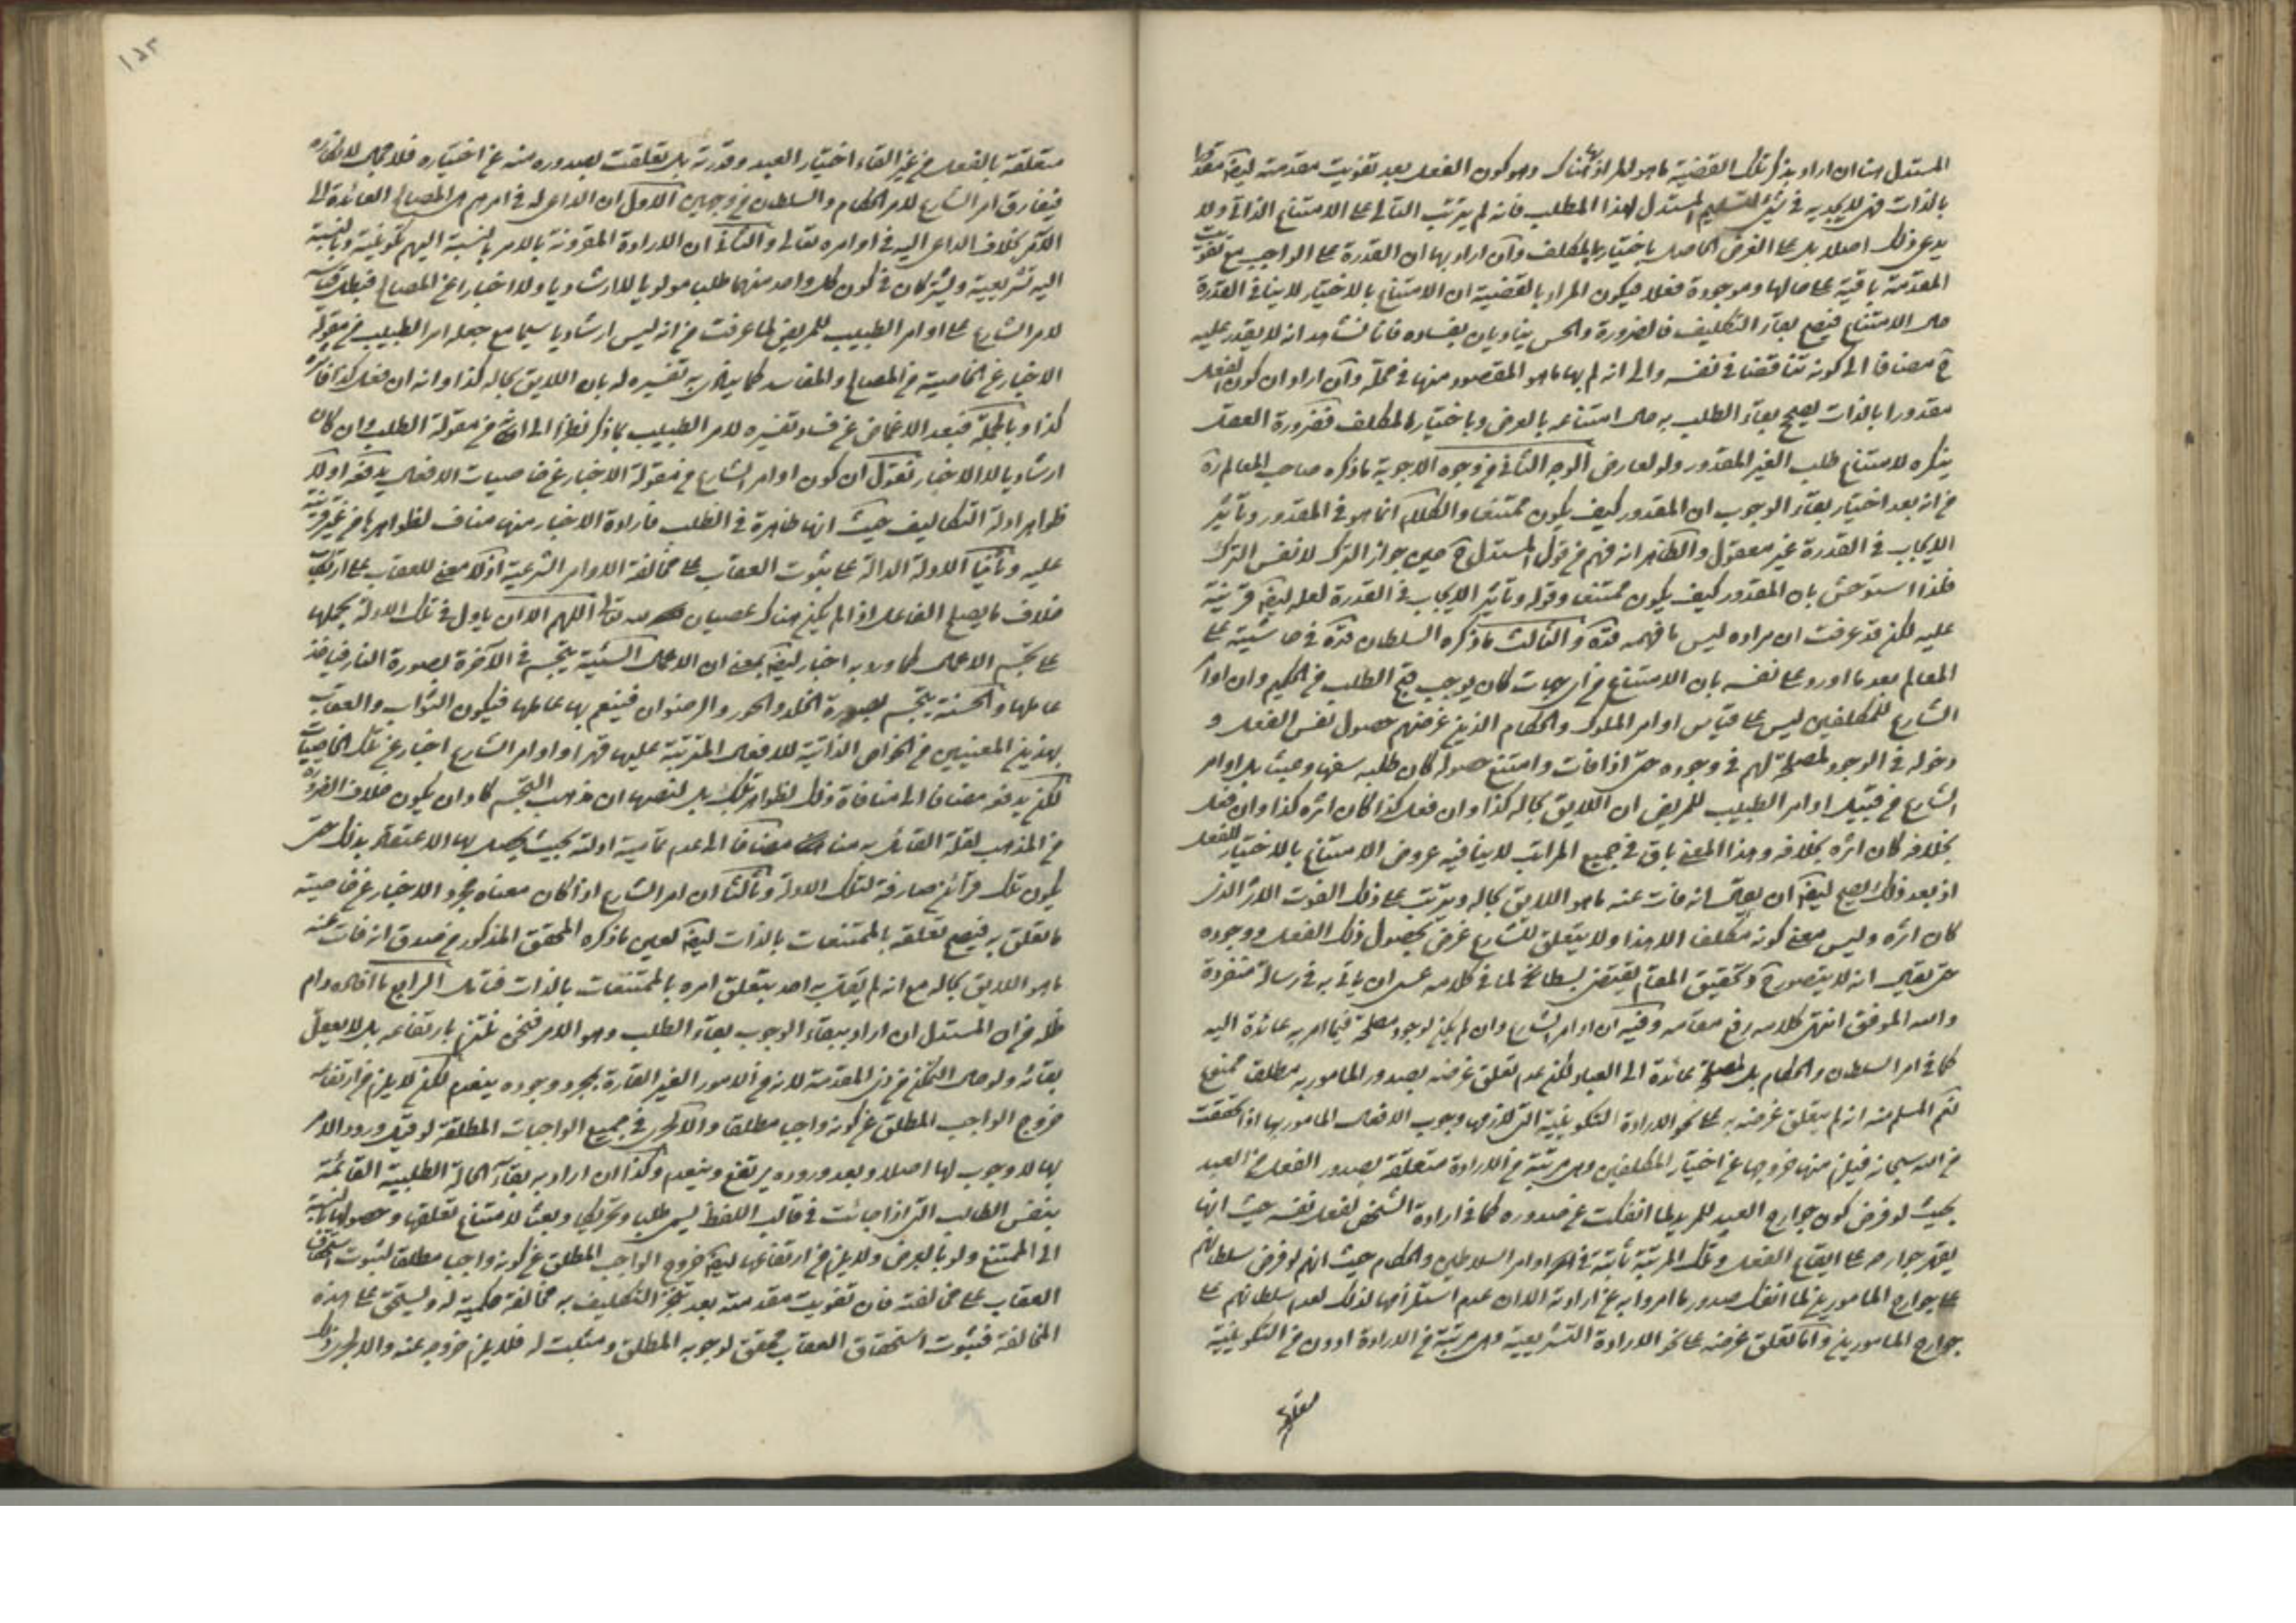 المستدل هنا ان اراد بذكر تلك القضية ما هو المراد بها هناك وهو كون الفعل بعد تفويت مقدمته ايضا مقدورا
بالذات فهى لا يجديه فى شىء لتسليم المستدل لهذا المطلب فانه لم يرتب التالى على الامتناع الذاتى ولا
يدعى ذلك اصلا بل على العرضى الحاصل باختيار المكلف وان اراد بها ان القدرة على الواجب مع تفويت
المقدمة باقية على حالها وموجودة فعلا فيكون المراد بالقضية ان الامتناع بالاختيار لا ينافى القدرة
حال الامتناع فيصح بقاء التكليف فالضرورة والحس يناديان بفساده فانا نشاهد انه لا يقدر عليه
ح مضافا الى كونه تناقضا فى نفسه والى انه لم بها ما هو المقصود منها فى محله وان اراد ان كون الفعل
مقدورا بالذات يصحح بقاء الطلب به حال امتناعه بالعرض وباختيار المكلف فضرورة العقل
ينكره لامتناع طلب الغير المقدور ولو لعارض الوجه الثانى من وجوه الاجوبة ما ذكره صاحب المعالم ره
من انه بعد اختيار بقاء الوجوب ان المقدور كيف يكون ممتنعا والكلام انما هو فى المقدور وتاثير
الايجاب فى القدرة غير معقول والظاهر انه فهم من قول المستدل ح حين جواز الترك لا نفس الترك
فلذا استوحش بان المقدور كيف يكون ممتنعا وقوله وتاثير الايجاب فى القدرة لعله ايضا قرينة
عليه لكن قد عرفت ان مراده ليس ما فهمه قده والثالث ما ذكره السلطان قده فى حاشيته على
المعالم بعد ما اورد على نفسه بان الامتناع من اى جهات كان يوجب قبح الطلب من الحكيم وان اوامر
الشارع للمكلفين ليس على قياس اوامر الملوك والحكام الذين غرضهم حصول نفس الفعل و
دخوله فى الوجود لمصلحة لهم فى وجوده حتى اذا فات وامتنع حصوله كان طلبه سفها وعبثا بل اوامر
الشارع من قبيل اوامر الطبيب للمريض ان اللايق بحاله كذا وان فعل كذا كان اثره كذا وان فعل
بخلافه كان اثره بخلافه وهذا المعنى باق فى جميع المراتب لا ينافيه عروض الامتناع بالاختيار للفعل
اذ بعد ذلك يصح ايضا ان يقال انه فات عنه ما هو اللايق بحاله ويترتب على ذلك الفوت الاثر الذى
كان اثره وليس معنى كونه مكلفا الا هذا ولا يتعلق للشارع غرض بحصول ذلك الفعل ووجوده
حتى يقال انه لا يتصور ح وتحقيق المقام يقتضى بسطا لما فى كلامه عسى ان ياتى به فى رسالة منفردة
والله الموفق انتهى كلامه رفع مقامه وفيه ان اوامر الشارع وان لم يكن لوجود مصلحة فيما امر به عائدة اليه
كما فى امر السلطان والحكام بل لمصلحة عائدة الى العباد لكن عدم تعلق غرضه بصدور المامور به مطلقا ممنوع
نعم المسلم منه انه لم يتعلق غرضه به على نحو الارادة التكوينية التى لازمها وجوب الافعال المامور بها اذا تحققت
من الله سبحانه فيلزم منها خروجها عن اختيار المكلفين وهى مرتبة من الارادة متعلقة بصدور الفعل من العبد
بحيث لو فرض كون جوارح العبد للمريد لما انفكت عن صدوره كما فى ارادة الشخص لفعل نفسه حيث انها
يقهر جوارحه على ايقاع الفعل وتلك المرتبة ثابتة فى اوامر السلاطين والحكام حيث انهم لو فرض سلطانهم
على جوارح المامورين لما انفك صدور ما امروا به عن ارادته الا ان عدم استلزامها لذلك لعدم سلطانهم على
جوارح المامورين وانما تعلق غرضه على نحو الارادة التشريعية وهى مرتبة من الارادة ادون من التكوينية
متعلقة
١٥٣
متعلقة بالفعل من غير القاء اختيار العبد وقدرته بل تعلقت بصدوره منه عن اختياره فلا مجال لانكاره
فيفارق امر الشارع لامر الحكام والسلطان من وجهين الاول ان الداعى له فى امرهم هى المصالح العائدة الى
الامر بخلاف الداعى اليه فى اوامره تعالى والثانى ان الارادة المقرونة بالامر بالنسبة اليهم تكوينية وبالنسبة
اليه تشريعية ويشتركان فى كون كل واحد منهما طلبا مولويا لا ارشاديا ولا اخبارا عن المصالح فبطل قياسه
لامر الشارع على اوامر الطبيب للمريض لما عرفت من انه ليس ارشاديا سيما مع جعله امر الطبيب من مقولة
الاخبار عن الخاصية من المصالح والمفاسد كما ينادى به تفسيره له بان اللايق بحاله كذا وانه ان فعل كذا فاثره
كذا وبالجملة فبعد الاغماض عن فساد تفسيره لامر الطبيب بما ذكر نظرا الى انه من مقولة الطلب وان كان
ارشاديا لا الاخبار نقول ان كون اوامر الشارع من مقولة الاخبار عن خاصيات الافعال يدفعه اولا
ظواهر ادلة التكاليف حيث انها ظاهرة فى الطلب فارادة الاخبار منها مناف لظواهرها من غير قرينة
عليه وثانيا الادلة الدالة على ثبوت العقاب على مخالفة الاوامر الشرعية اذ لا معنى للعقاب على ارتكاب
خلاف ما يصلح الفاعل اذا لم يكن هناك عصيان لله تعالى اللهم الا ان ياول فى تلك الادلة بحملها
على تجسم الاعمال كما ورد به اخبار ايضا بمعنى ان الاعمال السيئة يتجسم فى الآخرة بصورة النار فياخذ
عاملها والحسنة يتجسم بصورة الخلد والحور والرضوان فينعم بها عاملها فيكون الثواب والعقاب
بهذين المعنيين من الخواص الذاتية للافعال المترتبة عليها قهرا واوامر الشارع اخبار عن تلك الخاصيات
لكن يدفعه مضافا الى منافاة ذلك لظواهر تلك بل لنصها ان مذهب التجسم كاد ان يكون خلاف الضرورة
من المذهب لقلة القائل به منا مضافا الى عدم تمامية ادلته بحيث يحصل بها الاعتقاد بذلك حتى
يكون تلك قرائن صارفة لتلك الادلة وثالثا ان امر الشارع اذا كان معناه مجرد الاخبار عن خاصية
ما تعلق به فيصح تعلقه بالممتنعات بالذات ايضا لعين ما ذكره المحقق المذكور من صدق انه فات عنه
ما هو اللايق بحاله مع انه لم يقل به احد بتعلق امره بالممتنعات بالذات فتامل الرابع ما افاده دام
ظله من ان المستدل ان اراد ببقاء الوجوب بقاء الطلب وهو الامر فنحن نلتزم بارتفاعه بل لا يعقل
بقائه ولو حال التمكن من ذى المقدمة لانه من الامور الغير القارة بمجرد وجوده ينعدم لكن لا يلزم من ارتفاعه
خروج الواجب المطلق عن كونه واجبا مطلقا والا لجرى فى جميع الواجبات المطلقة لو قيل ورود الامر
بها لا وجوب لها اصلا وبعد وروده يرتفع وينعدم وكذا ان اراد به بقاء الحالة الطلبية القائمة
بنفس الطالب التى اذا جائت فى قالب اللفظ يسمى طلبا وتحريكا وبعثا لامتناع تعلقها وحصولها بالنسبة
الى الممتنع ولو بالعرض ولا يلزم من ارتفاعها ايضا خروج الواجب المطلق عن كونه واجبا مطلقا لثبوت استحقاق
العقاب على مخالفته فان تفويت مقدمته بعد تنجز التكليف به مخالفة حكمية له ويستحق على هذه
المخالفة فثبوت استحقاق العقاب محقق لوجوبه المطلق ومثبت له فلا يلزم خروجه عنه والا لجرى ذلك